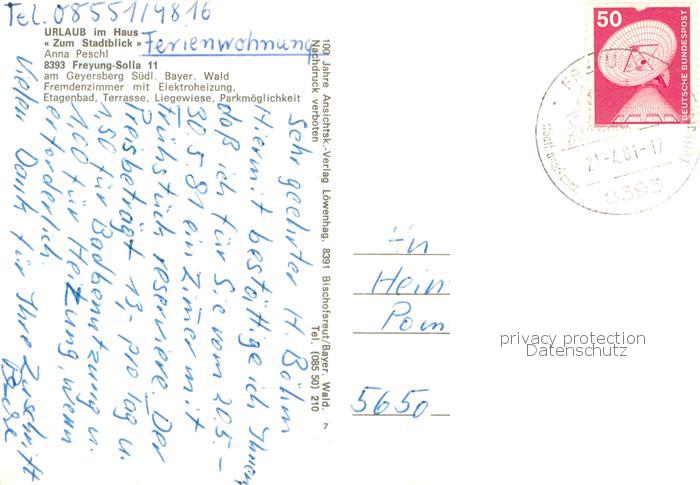 Tel. 08551/4816
URLAUB im Haus
« Zum Stadtblick » Ferienwohnung
Anna Peschl
8393 Freyung-Solla 11
am Geyersberg Südl. Bayer. Wald
Fremdenzimmer mit Elektroheizung,
Etagenbad, Terrasse, Liegewiese, Parkmöglichkeit
Sehr geehrter H Böhm
Hiermit bestättige ich Ihnen
daß ich für Sie vom 20.5.-
30.5.81 ein Zimmer mit
Frühstück reserviere. Der
Preis beträgt 13,- pro Tag u.
1,50 für Badbenutzung u.
1.00 für Heizung, wenn
erforderlich.
Vielen Dank für Ihre Zuschrift
100 Jahre Ansichtsk.-Verlag Löwenhag, 8391 Bischofsreut/Bayer. Wald.
Nachdruck verboten
Tel. (085 50) 210
7
50
DEUTSCHE BUNDESPOST
21-4.81-17
8393
An
Hein
5650
privacy protection
Datenschutz